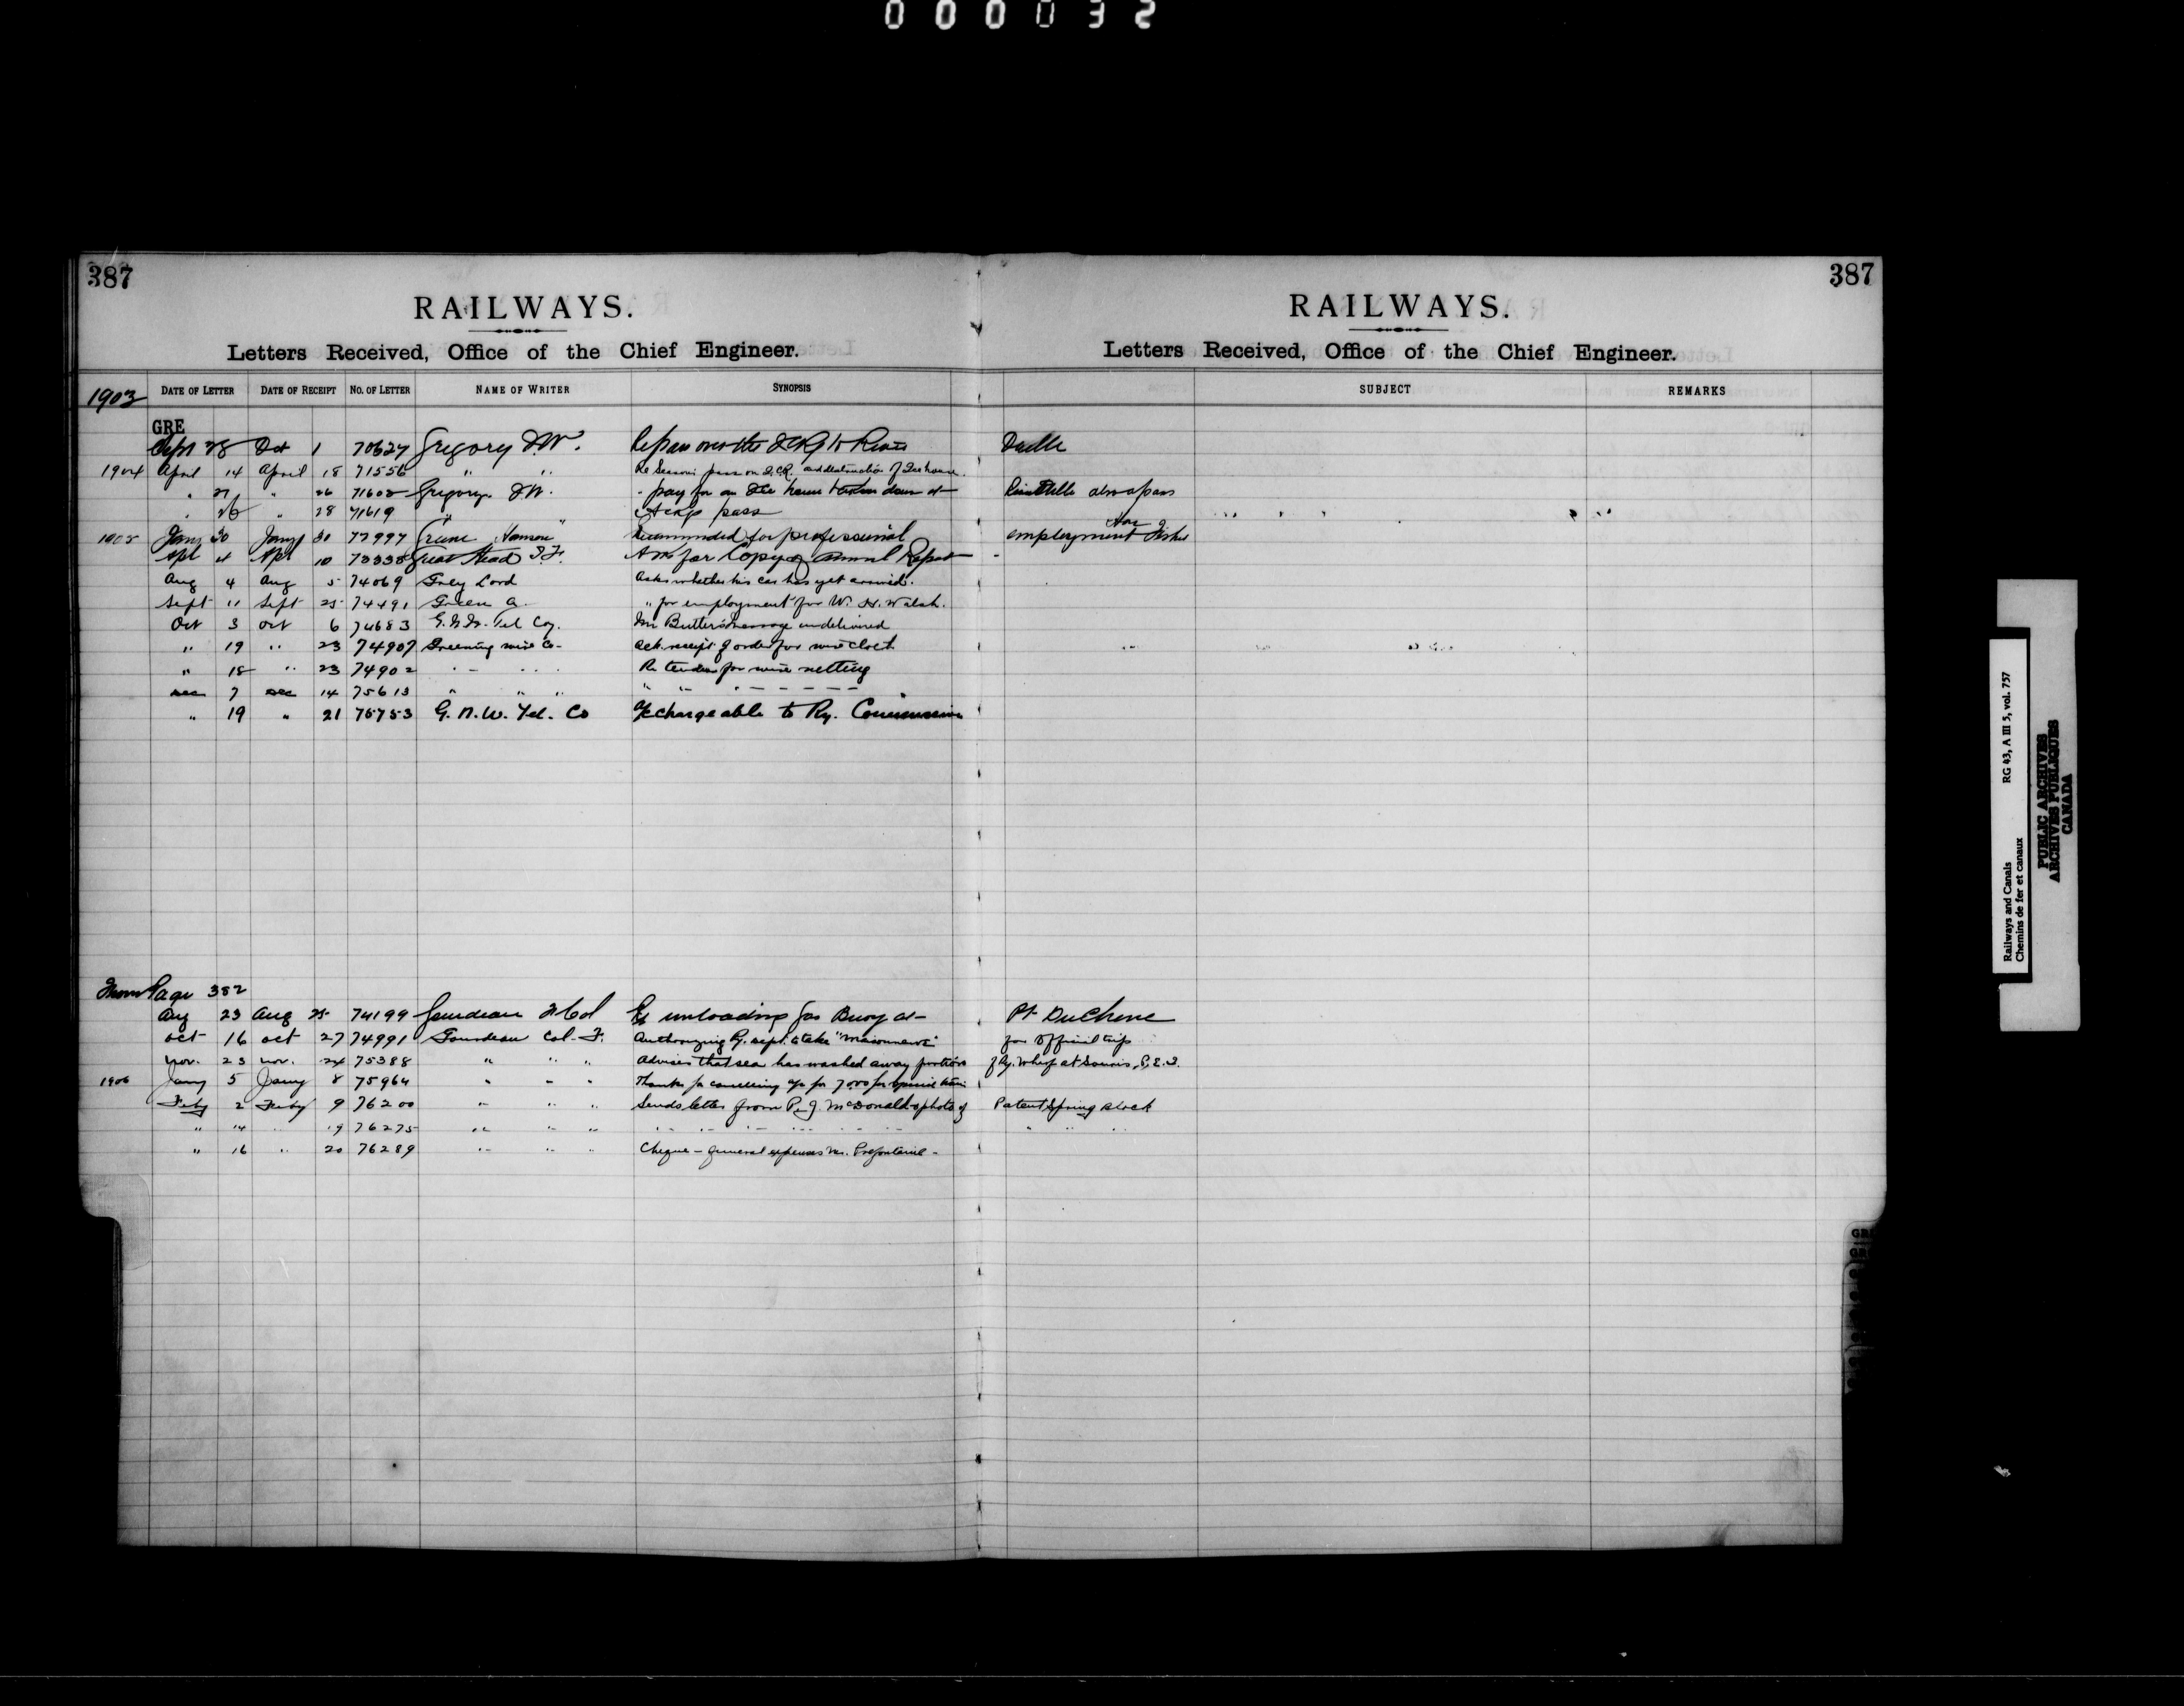 000032
387
387
RAILWAYS.
RAILWAYS.
Letters Received, Office of the Chief Engineer.
Letters Received, Office of the Chief Engineer.
1903 DATE OF LETTER DATE OF RECEIPT NO. OF LETTER NAME OF WRITER SYNOPSIS SUBJECT REMARKS
GRE
Sept 28 Oct 1 70627 Gregory J.W. Re pass over the I.C.Ry to
1904 April 14 April 18 71556 " " Re Season pass on I.C.R. and destruction of Ice house.
" 21 " 26 71602 Gregory J.W. - pay for an Ice house taken down at also a pass
" 26 " 28 71619 " " Ackg pass
1905 Jany 30 Jany 30 72997 Greene Recommended for professional employment Hon Fisher
Apl 4 Apl 10 73338 Ask for Copy of Annual Report -
Aug 4 Aug 5 74069 Grey Lord Asks whether his car has yet arrived.
Sept 11 Sept 25 74491 Green G. " for employment for W. H. Walsh.
Oct 3 Oct 6 74683 G.N.W. Tel Coy. Mr Butler's message undelivered
" 19 " 23 74907 Greening wire Co- Ack. receipt of order for wire cloth
" 18 " 23 74902 " " " Re tender for wire netting
Dec 7 Dec 14 75613 " " " " " " " "
" 19 " 21 75753 G. N. W. Tel. Co a/c chargeable to Ry. Commission
From Page 382
Aug 23 Aug 25 74199 Gourdeau Col Re unloading Gas Buoy at- Pt DuChene
Oct 16 Oct 27 74991 Gourdeau Col. F. Authorizing Ry. Dept. to take "Maisonneuve" for Official trip
Nov. 23 Nov. 24 75388 " " " Advises that sea has washed away portions of Ry. Wharf at Souris, P.E.I.
1906 Jany 5 Jany 8 75964 " " " Thanks for cancelling a/c for 7.00 for special train
Feby 2 Feby 9 76200 " " " Sends letter from P. J. McDonald & photo of Patent Spring Block
" 14 " 19 76275 " " " " " " " " "
" 16 " 20 76289 " " " Cheque - general expenses Mr. Prefontaine -
Railways and Canals RG 43, A III 5, vol. 757
Chemins de fer et canaux
PUBLIC ARCHIVES
ARCHIVES PUBLIQUES
CANADA